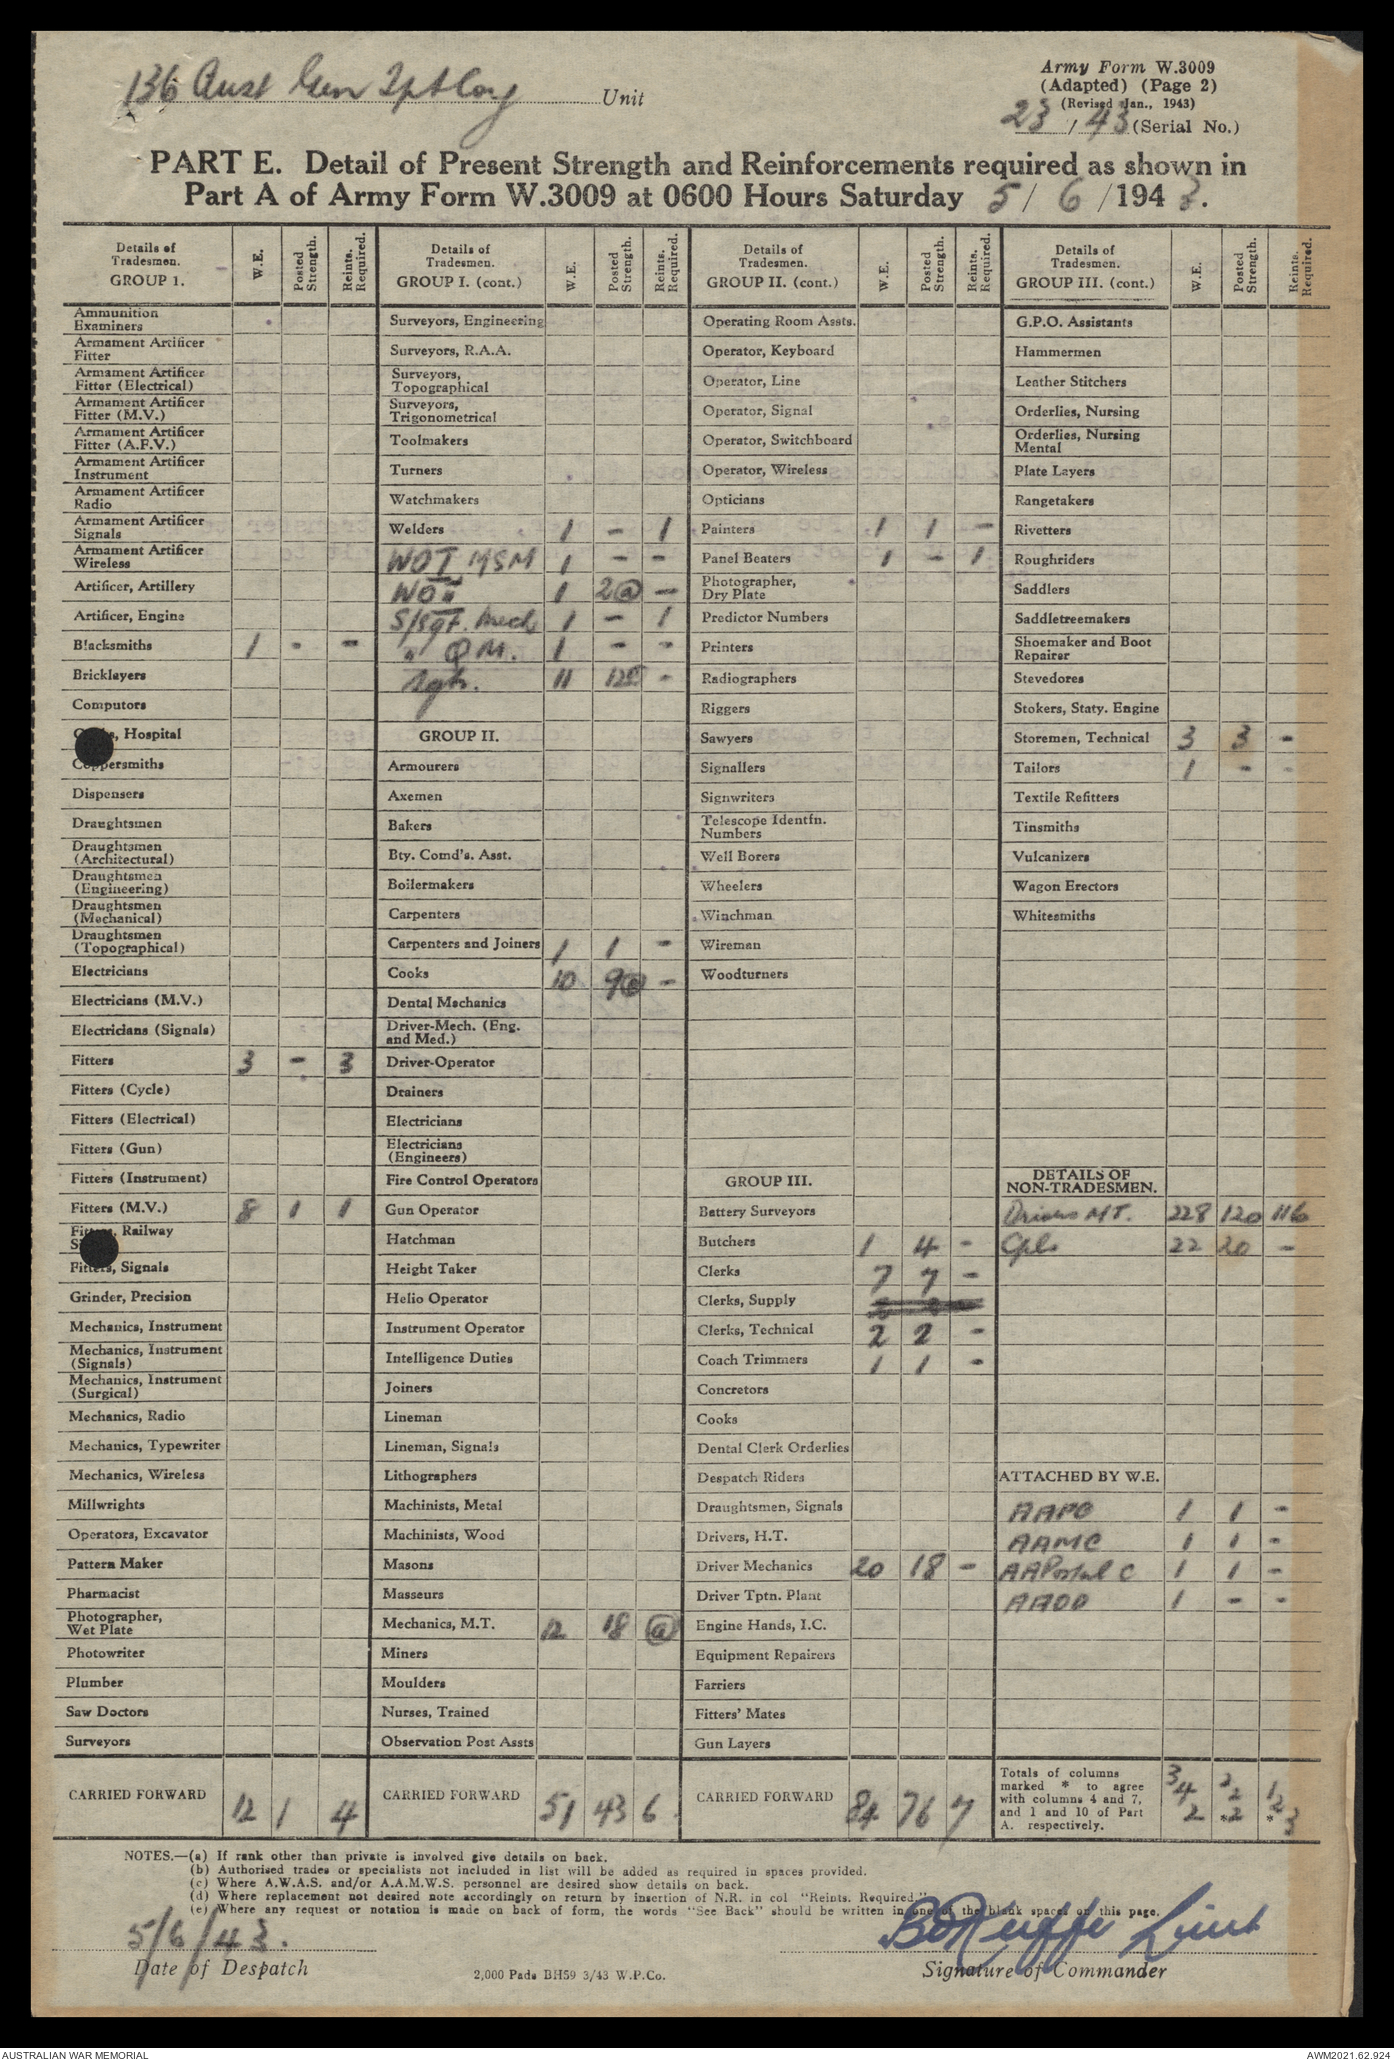 136 Aust Gen Tpt Coy Unit
Army Form W.3009
(Adapted) (Page 2)
(Revised Jan., 1943)
23 / 43 (Serial No.)
PART E. Detail of Present Strength and Reinforcements required as shown in
Part A of Army Form W.3009 at 0600 Hours Saturday 5 / 6 /1943.
Details of Tradesmen. GROUP 1. W.E. Posted Strength. Reints. Required.
Ammunition Examiners
Armament Artificer Fitter
Armament Artificer Fitter (Electrical)
Armament Artificer Fitter (M.V.)
Armament Artificer Fitter (A.F.V.)
Armament Artificer Instrument
Armament Artificer Radio
Armament Artificer Signals
Armament Artificer Wireless
Artificer, Artillery
Artificer, Engine
Blacksmiths 1 - -
Bricklayers
Computors
Hospital
Coppersmiths
Dispensers
Draughtsmen
Draughtsmen (Architectural)
Draughtsmen (Engineering)
Draughtsmen (Mechanical)
Draughtsmen (Topographical)
Electricians
Electricians (M.V.)
Electricians (Signals)
Fitters 3 - 3
Fitters (Cycle)
Fitters (Electrical)
Fitters (Gun)
Fitters (Instrument)
Fitters (M.V.) 8 1 1
Fitters, Railway
Fitters, Signals
Grinder, Precision
Mechanics, Instrument
Mechanics, Instrument (Signals)
Mechanics, Instrument (Surgical)
Mechanics, Radio
Mechanics, Typewriter
Mechanics, Wireless
Millwrights
Operators, Excavator
Pattern Maker
Pharmacist
Photographer, Wet Plate
Photowriter
Plumber
Saw Doctors
Surveyors
CARRIED FORWARD 12 1 4
Details of Tradesmen. GROUP I. (cont.) W.E. Posted Strength. Reints. Required.
Surveyors, Engineering
Surveyors, R.A.A.
Surveyors, Topographical
Surveyors, Trigonometrical
Toolmakers
Turners
Watchmakers
Welders 1 - 1
WO I MSM 1 - -
WO II 1 2@ -
S/sgt. Mech 1 - 1
" Q M. 1 - -
Sgts. 11 12@ -
GROUP II.
Armourers
Axemen
Bakers
Bty. Comd's. Asst.
Boilermakers
Carpenters
Carpenters and Joiners 1 1 -
Cooks 10 9@ -
Dental Mechanics
Driver-Mech. (Eng. and Med.)
Driver-Operator
Drainers
Electricians
Electricians (Engineers)
Fire Control Operators
Gun Operator
Hatchman
Height Taker
Helio Operator
Instrument Operator
Intelligence Duties
Joiners
Lineman
Lineman, Signals
Lithographers
Machinists, Metal
Machinists, Wood
Masons
Masseurs
Mechanics, M.T. 12 18 @
Miners
Moulders
Nurses, Trained
Observation Post Assts
CARRIED FORWARD 51 43 6
Details of Tradesmen. GROUP II. (cont.) W.E. Posted Strength. Reints. Required.
Operating Room Assts.
Operator, Keyboard
Operator, Line
Operator, Signal
Operator, Switchboard
Operator, Wireless
Opticians
Painters 1 1 -
Panel Beaters 1 - 1
Photographer, Dry Plate
Predictor Numbers
Printers
Radiographers
Riggers
Sawyers
Signallers
Signwriters
Telescope Identfn. Numbers
Well Borers
Wheelers
Winchman
Wireman
Woodturners
GROUP III.
Battery Surveyors
Butchers 1 4 -
Clerks 7 7 -
Clerks, Supply
Clerks, Technical 2 2 -
Coach Trimmers 1 1 -
Concretors
Cooks
Dental Clerk Orderlies
Despatch Riders
Draughtsmen, Signals
Drivers, H.T.
Driver Mechanics 20 18 -
Driver Tptn. Plant
Engine Hands, I.C.
Equipment Repairers
Farriers
Fitters' Mates
Gun Layers
CARRIED FORWARD 84 76 7
Details of Tradesmen. GROUP III. (cont.) W.E. Posted Strength. Reints. Required.
G.P.O. Assistants
Hammermen
Leather Stitchers
Orderlies, Nursing
Orderlies, Nursing Mental
Plate Layers
Rangetakers
Rivetters
Roughriders
Saddlers
Saddletreemakers
Shoemaker and Boot Repairer
Stevedores
Stokers, Staty. Engine
Storemen, Technical 3 3 -
Tailors 1 - -
Textile Refitters
Tinsmiths
Vulcanizers
Wagon Erectors
Whitesmiths
DETAILS OF NON-TRADESMEN.
Drivers MT. 228 120 116
Cpls 22 20 -
ATTACHED BY W.E.
AAPC 1 1 -
AAMC 1 1 -
AAPostal C 1 1 -
AAOD 1 - -
Totals of columns marked * to agree with columns 4 and 7, and 1 and 10 of Part A. respectively. 342 *222 *123
NOTES.—(a) If rank other than private is involved give details on back.
(b) Authorised trades or specialists not included in list will be added as required in spaces provided.
(c) Where A.W.A.S. and/or A.A.M.W.S. personnel are desired show details on back.
(d) Where replacement not desired note accordingly on return by insertion of N.R. in col "Reints. Required."
(e) Where any request or notation is made on back of form, the words "See Back" should be written in one of the blank spaces on this page.
5/6/43.
Date of Despatch
2,000 Pads BH59 3/43 W.P.Co.
Lieut
Signature of Commander
AUSTRALIAN WAR MEMORIAL
AWM2021.62.924